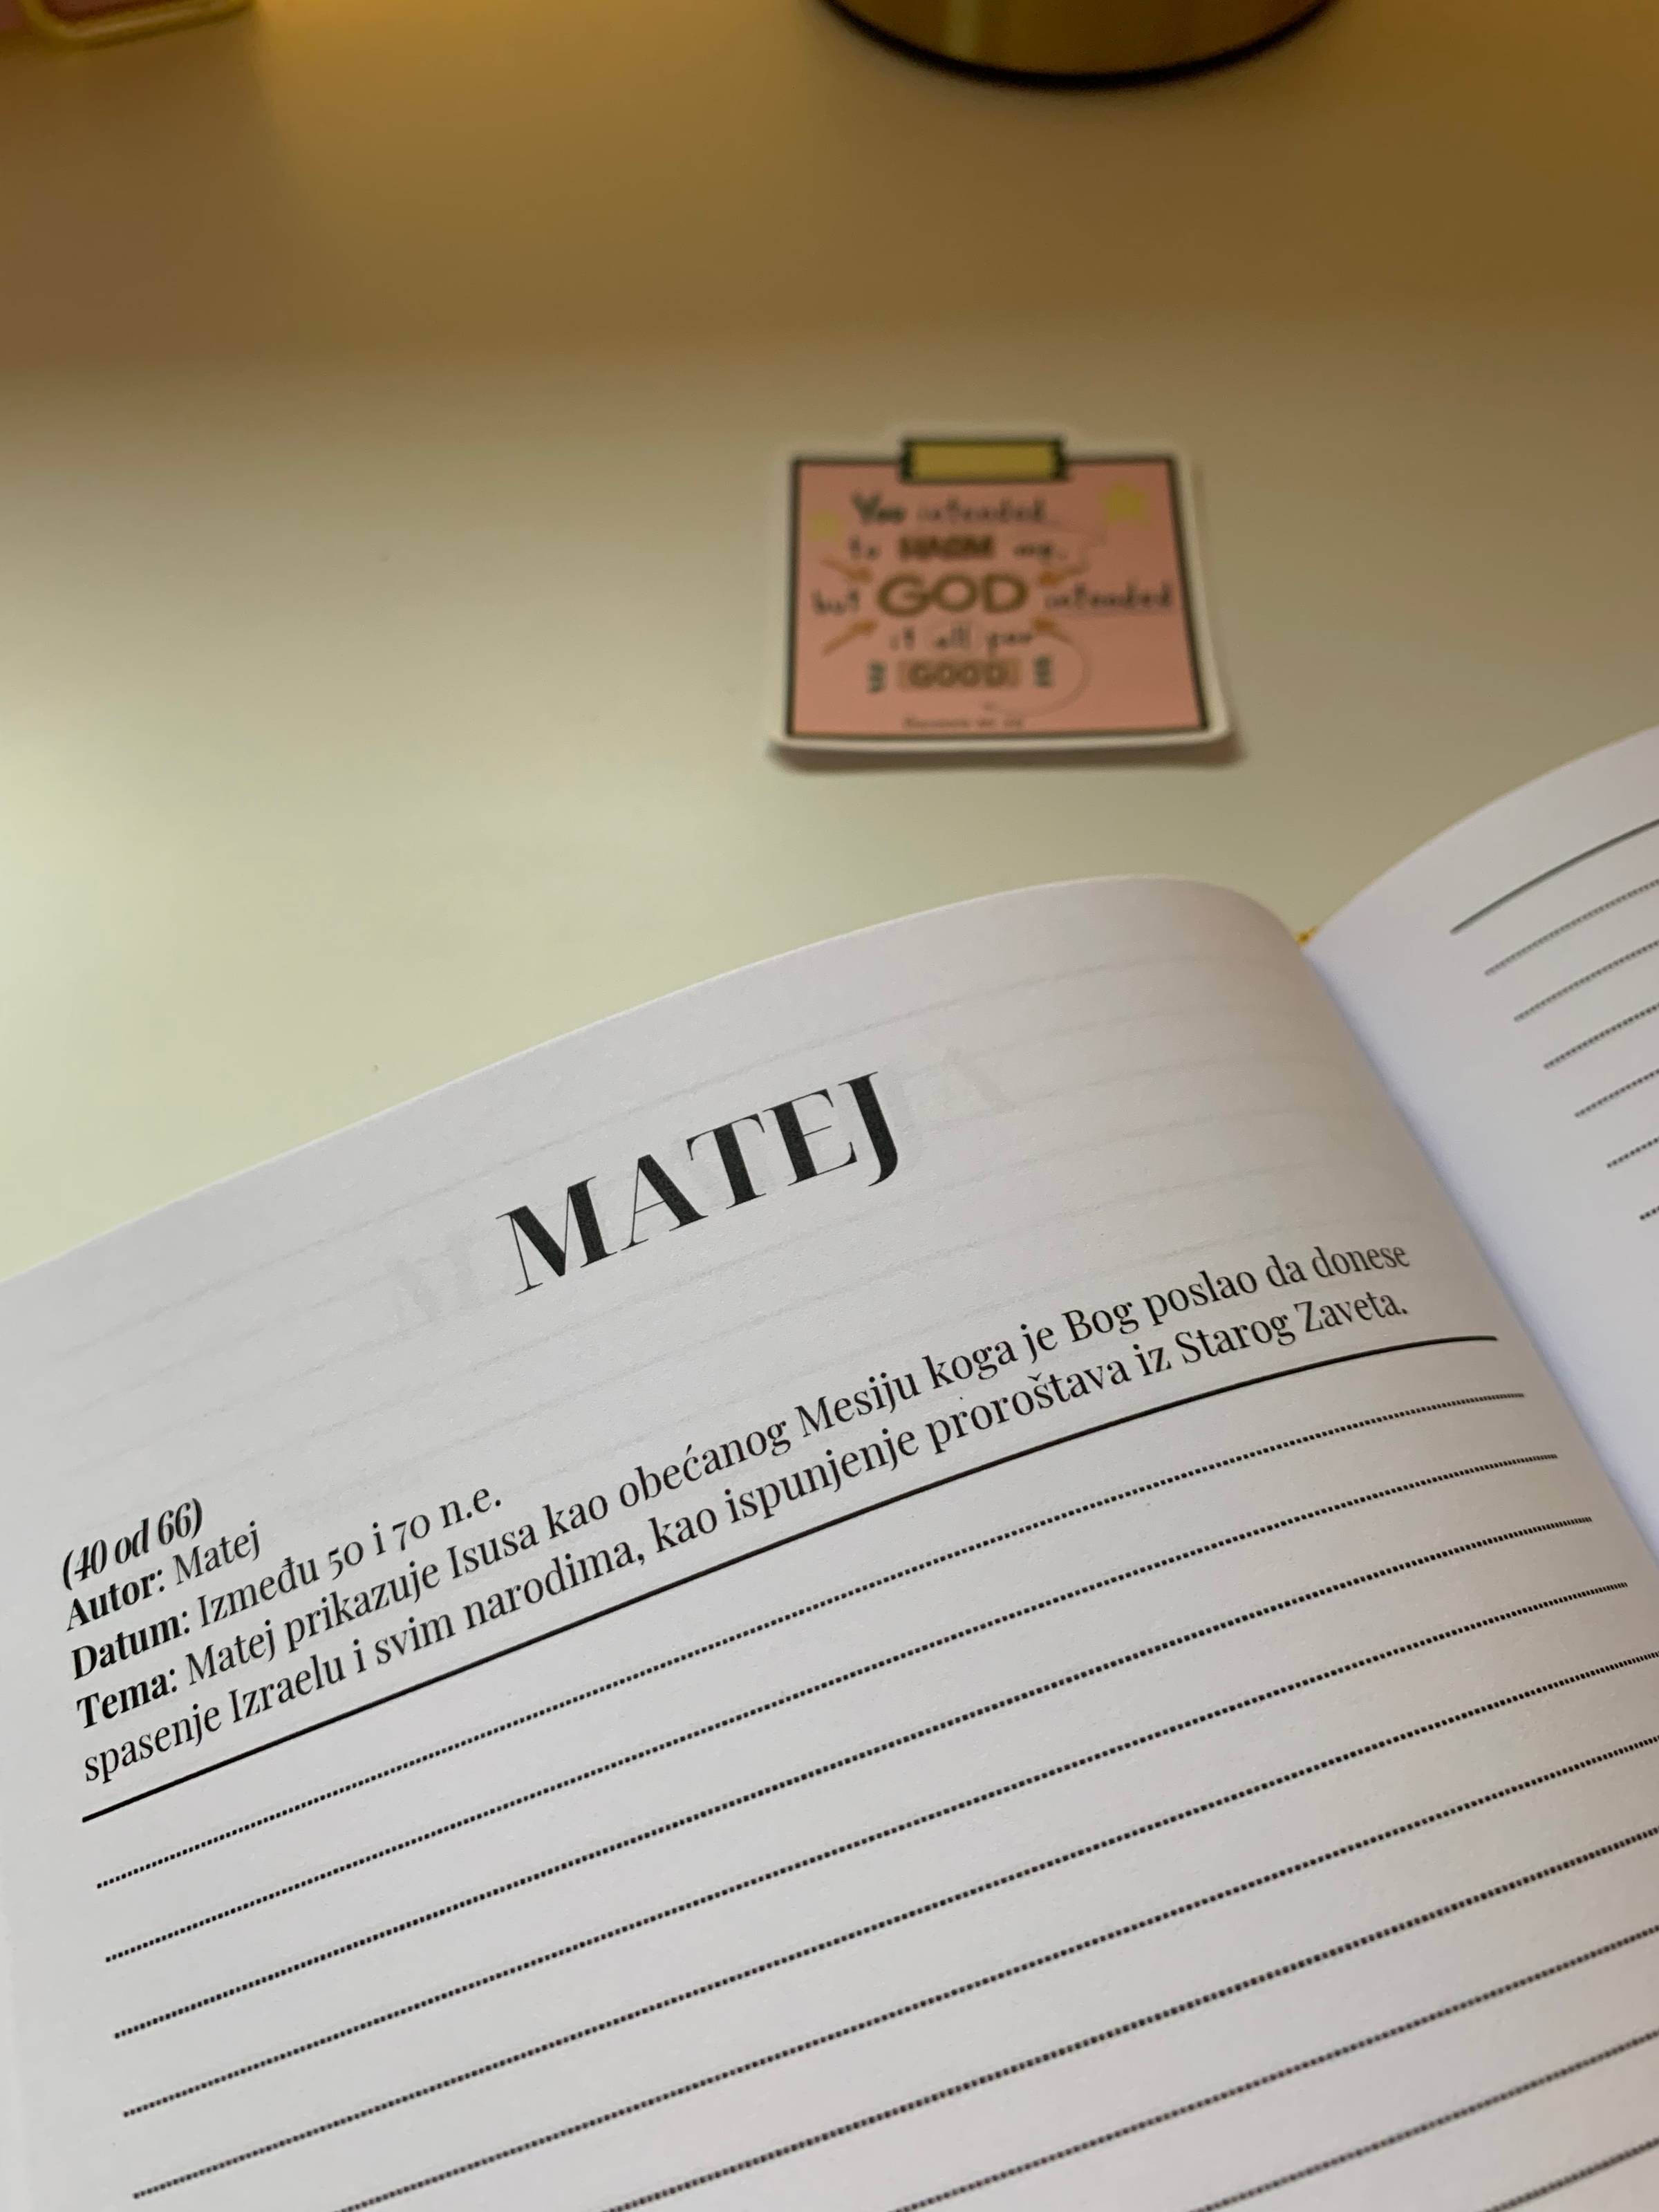 You intended
to HARM me,
but GOD intended
it all for
GOOD
MATEJ
(40 od 66)
Autor: Matej
Datum: Između 50 i 70 n.e.
Tema: Matej prikazuje Isusa kao obećanog Mesiju koga je Bog poslao da donese
spasenje Izraelu i svim narodima, kao ispunjenje proroštava iz Starog Zaveta.